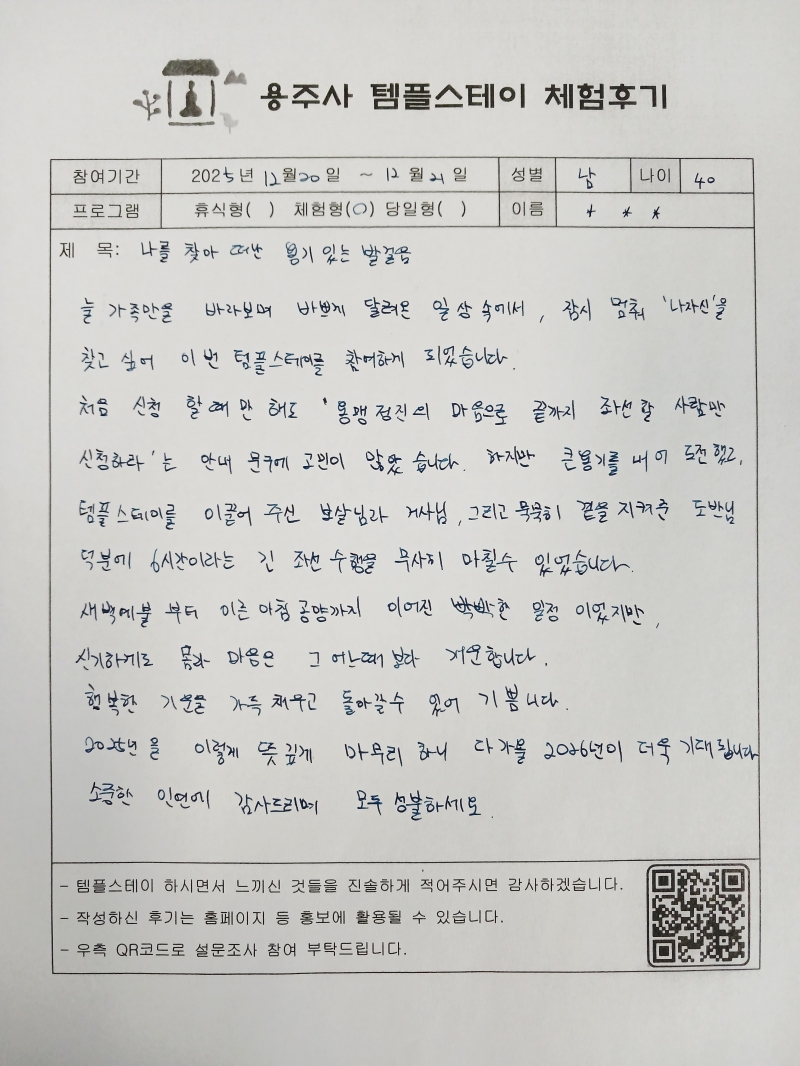 용주사 템플스테이 체험후기
참여기간 2025년 12월20일 ~ 12월 21일 성별 남 나이 40
프로그램 휴식형( ) 체험형(○) 당일형( ) 이름 * * *
제 목: 나를 찾아 떠난 용기 있는 발걸음
늘 가족만을 바라보며 바쁘게 달려온 일상 속에서, 잠시 멈춰 '나자신'을
찾고 싶어 이번 템플스테이를 참여하게 되었습니다.
처음 신청 할때만 해도 '용맹정진의 마음으로 끝까지 좌선할 사람만
신청하라'는 안내 문구에 고민이 많았습니다. 하지만 큰용기를 내어 도전했고,
템플스테이를 이끌어 주신 보살님과 거사님, 그리고 묵묵히 곁을 지켜준 도반님
덕분에 6시간이라는 긴 좌선 수행을 무사히 마칠수 있었습니다.
새벽예불 부터 이른아침공양까지 이어진 빡빡한 일정 이었지만,
신기하게도 몸과 마음은 그 어느때 보다 개운합니다.
행복한 기운을 가득 채우고 돌아갈수 있어 기쁩니다.
2025년을 이렇게 뜻깊게 마무리 하니 다가올 2026년이 더욱 기대됩니다
소중한 인연에 감사드리며 모두 성불하세요.
- 템플스테이 하시면서 느끼신 것들을 진솔하게 적어주시면 감사하겠습니다.
- 작성하신 후기는 홈페이지 등 홍보에 활용될 수 있습니다.
- 우측 QR코드로 설문조사 참여 부탁드립니다.